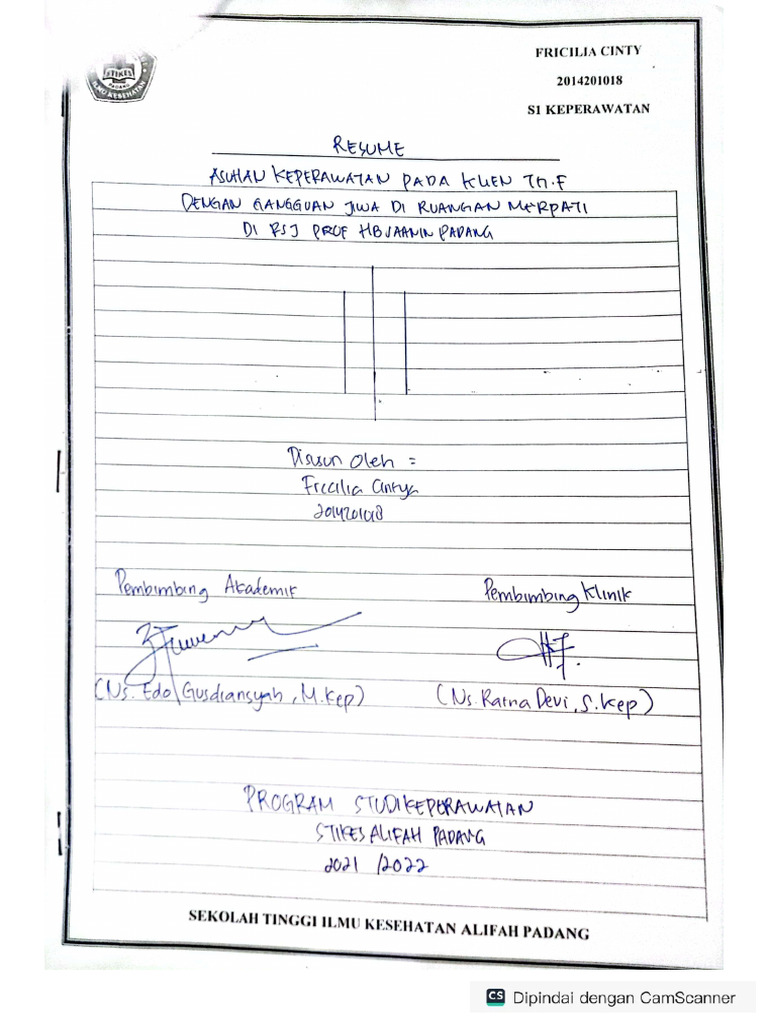 STIKES
PADANG
ILMU KESEHATAN
FRICILIA CINTY
2014201018
S1 KEPERAWATAN
RESUME
ASUHAN KEPERAWATAN PADA KLIEN Tn.F
DENGAN GANGGUAN JIWA DI RUANGAN MERPATI
DI RSJ PROF HB SAANIN PADANG
Disusun Oleh =
Fricilia Cintya
2014201018
Pembimbing Akademik
Pembimbing Klinik
(Ns. Edo Gusdiansyah, M.Kep)
(Ns. Ratna Devi, S.Kep)
PROGRAM STUDI KEPERAWATAN
STIKES ALIFAH PADANG
2021 /2022
SEKOLAH TINGGI ILMU KESEHATAN ALIFAH PADANG
CS Dipindai dengan CamScanner